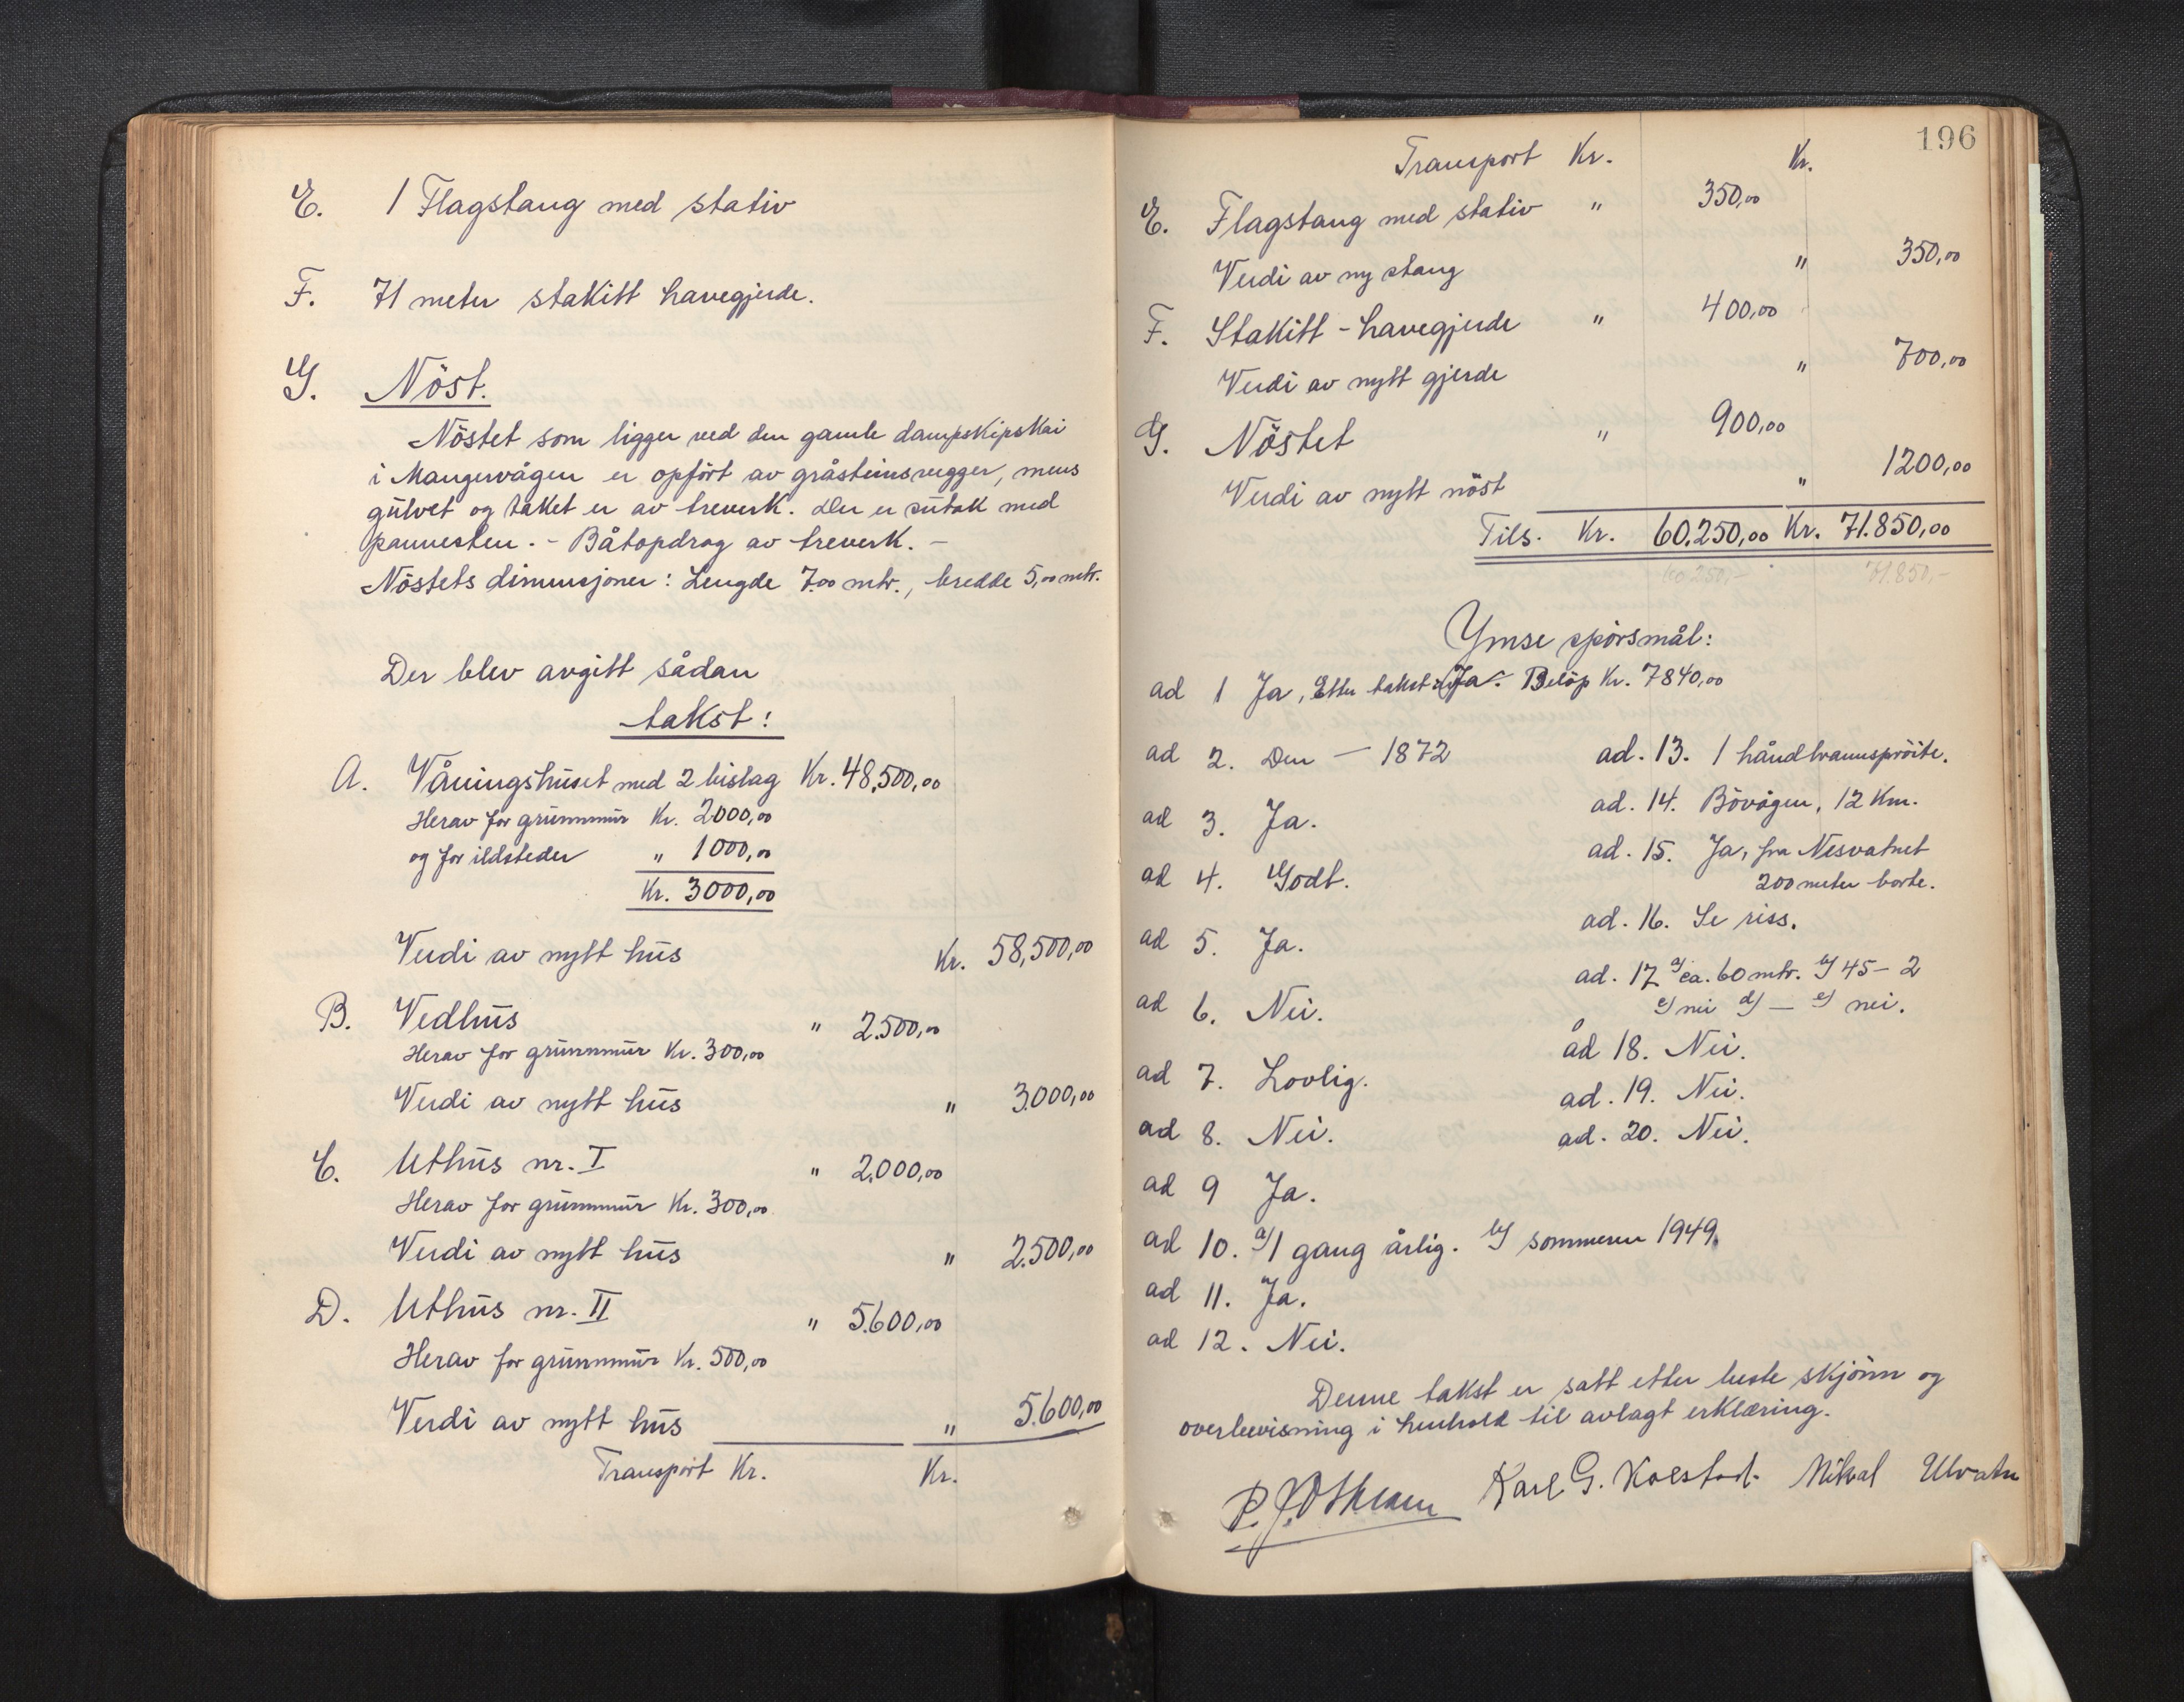 E. 1 Flagstang med stativ
F. 71 meter stakitt havegjerde.
G. Nöst.
Nöstet som ligger ved den gamle dampskipskai
i Mangervågen er opfört av gråsteinsvegger, mens
gulvet og taket er av treverk. Der er sutak med
pannesten. - Båtopdrag av treverk. -
Nöstets dimensjoner: Lengde 7.00 mtr., bredde 5,00 mtr.
Der blev avgitt sådan
takst:
A. Våningshuset med 2 bislag Kr. 48,500,00
Herav for grunnmur Kr. 2000,00
og for ildsteder " 1000,00
Kr. 3000,00
Verdi av nytt hus Kr. 58,500,00
B. Vedhus " 2.500,00
Herav for grunnmur Kr. 300,00
Verdi av nytt hus " 3.000,00
C. Uthus nr. I " 2.000,00
Herav for grunnmur Kr. 300,00
Verdi av nytt hus " 2.500,00
D. Uthus nr. II " 5.600,00
Herav for grunnmur Kr. 500,00
Verdi av nytt hus " 5.600,00
Transport Kr. Kr.
196
Transport Kr. Kr.
E. Flagstang med stativ " 350,00
Verdi av ny stang " 350,00
F. Stakitt-havegjerde " 400,00
Verdi av nytt gjerde " 700,00
G. Nöstet " 900,00
Verdi av nytt nöst " 1200,00
Tils. Kr. 60.250,00 Kr. 71.850,00
60.250,- 71.850,-
Ymse spörsmål:
ad 1 Ja, Etter takst Ja. Belöp Kr. 7840,00
ad 2. Den — 1872
ad 3. Ja.
ad 4. Godt.
ad 5. Ja.
ad 6. Nei.
ad 7. Lovlig.
ad 8. Nei.
ad 9 Ja.
ad 10. a/ 1 gang årlig. b/ sommeren 1949.
ad 11. Ja.
ad 12. Nei.
ad. 13. 1 håndbrannspröite.
ad. 14. Bövågen, 12 Km.
ad. 15. Ja, fra Nesvatnet
200 meter borte.
ad. 16. Se riss.
ad. 17 a/ ca. 60 mtr. b/ 45 - 2
c/ nei d/ — e/ nei.
ad 18. Nei.
ad. 19. Nei.
ad. 20. Nei.
Denne takst er satt etter beste skjönn og
overbevisning i henhold til avlagt erklæring.
Karl G. Kolstad. Mikal Ulvatn